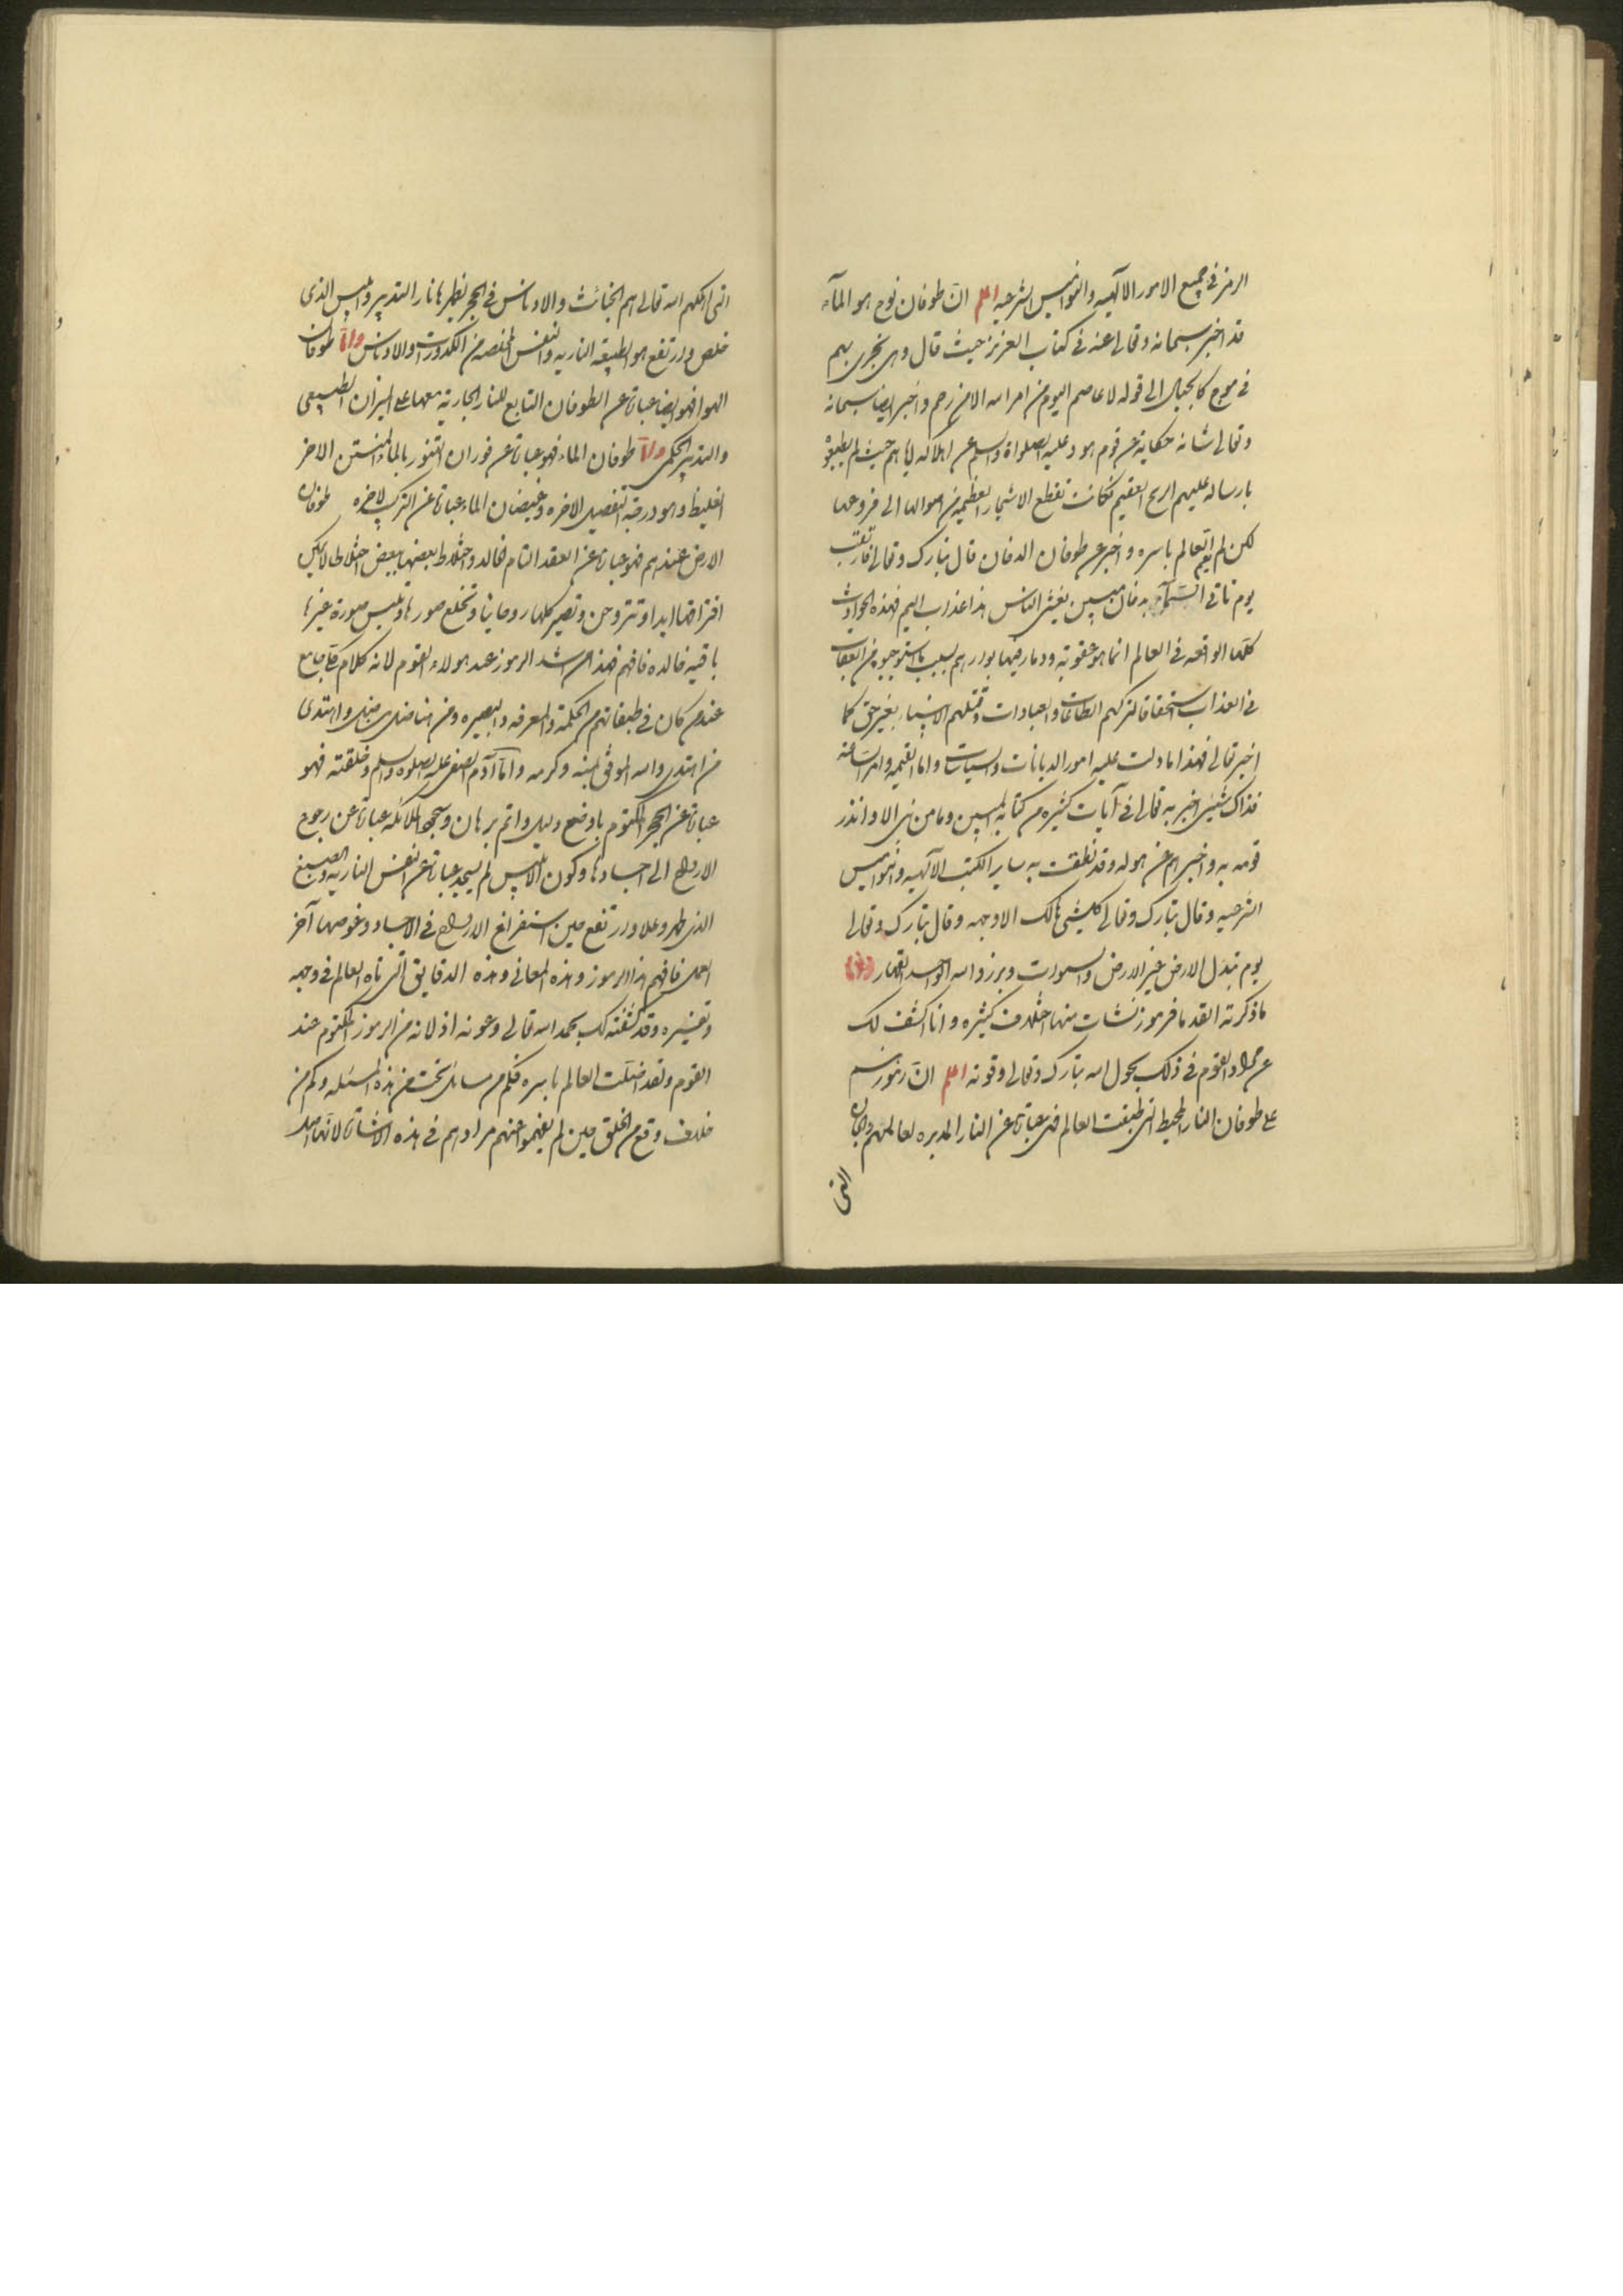 الرمز في جميع الامور الالهيه والنواميس الشرعيه اعلم ان طوفان نوح هو المآء
قد اخبر سبحانه وتعالى عنه في كتاب العزيز حيث قال وهى تجرى بهم
في موج كالجبال الى قوله لا عاصم اليوم من امر الله الا من رحم واخبر ايضا سبحانه
وتعالى شانه حكاية عن قوم هود عليه الصلواة والسلم عن اهلاكه اياهم حيث لم يطيعوه
بارساله عليهم الريح العقيم فكانت تقطع الاشجار العظيمه من اصولها الى فروعها
لكن لم يعم العالم باسره واخبر عن طوفان الدخان قال تبارك وتعالى فارتقب
يوم تاتى السمآء بدخان مبين يغشى الناس هذا عذاب اليم فهذه الحوادث
كلها الواقعه في العالم انما هو عقوبة ودمار فيها بوارهم بسبب ما استوجبوه من العقاب
في العذاب استحقاقا لتركهم الطاعات والعبادات وقتلهم الانبياء بغير حق كما
اخبر تعالى فهذا ما دلت عليه امور الديانات والسياسات واما القيمه وامر الساعه
فذاك شيئ اخبر به تعالى في آيات كثيره من كتابه المبين وما من نبى الا وانذر
قومه به واخبرهم عن هوله وقد نطقت به ساير الكتب الالهيه والنواميس
الشرعيه وقال تبارك وتعالى كل شيئ هالك الا وجهه وقال تبارك وتعالى
يوم تبدل الارض غير الارض والسموات وبرزوا لله الواحد القهار
ما ذكرته القدما فرموز نشات منها اختلاف كثيره وانا اكشف لك
عن مراد القوم في ذلك بحول الله تبارك وتعالى وقوته اعلم ان رموزهم
على طوفان النار المحيط التى طبقت العالم فهى عبارة عن النار المدبره لعالمهم والجبال
التى
التى اهلكهم الله تعالى هم الخبائث والادناس في الحجر يطهرها نار التدبير وابليس الذى
خلص وارتفع هو الطبيعة الناريه والنفس المخلصه من الكدورات والادناس واما طوفان
الهوا فهو ايضا عبارة عن الطوفان التابع للنار الجارية معها على الميزان الطبيعى
والتدبير الحكمى واما طوفان الماء فهو عبارة عن فوران التنور بالماء المنتن الاخر
الغليظ وهو درجة التفصيل الاخره وغيضان الماء عبارة عن التركيب الاخره طوفان
الارض عندهم فهو عبارة عن العقد التام الخالد واختلاط بعضها ببعض اختلاطا لا يمكن
افتراقها ابدا وتتروحن وتصير كلها روحانيا وتخلع صورها وتلبس صورة غيرها
باقيه خالده فافهم فهذا من اشد الرموز عند هولاء القوم لانه كلام كلى جامع
عند من كان في طبقاتهم من الحكمة والمعرفه والبصيره ومن هنا ضل من ضل واهتدى
من اهتدى والله الموفق بمنه وكرمه واما آدم الصفى عليه الصلوة والسلم وخلقته فهو
عبارة عن الحجر المكتوم باوضح دليل واتم برهان وسجود الملائكه عبارة عن رجوع
الارواح الى اجسادها وكون ابليس لم يسجد عبارة عن النفس الناريه والصبغ
الذى ظهر وعلا وارتفع حين استفراغ الارواح في الاجساد وغوصها آخر
العمل فافهم هذا الرموز وهذه المعانى وهذه الدقايق التى تاه العالم في وجهه
وتفسيره وقد كشفته لك بحمد الله تعالى وعونه اذ لانه من الرموز المكتوم عند
القوم ولقد اضلت العالم باسره فكم من مسائل تحت من هذه المسئله وكم من
خلاف وقع من الخلق حين لم يفهموا عنهم مرادهم في هذه الاشارة لانها اصل